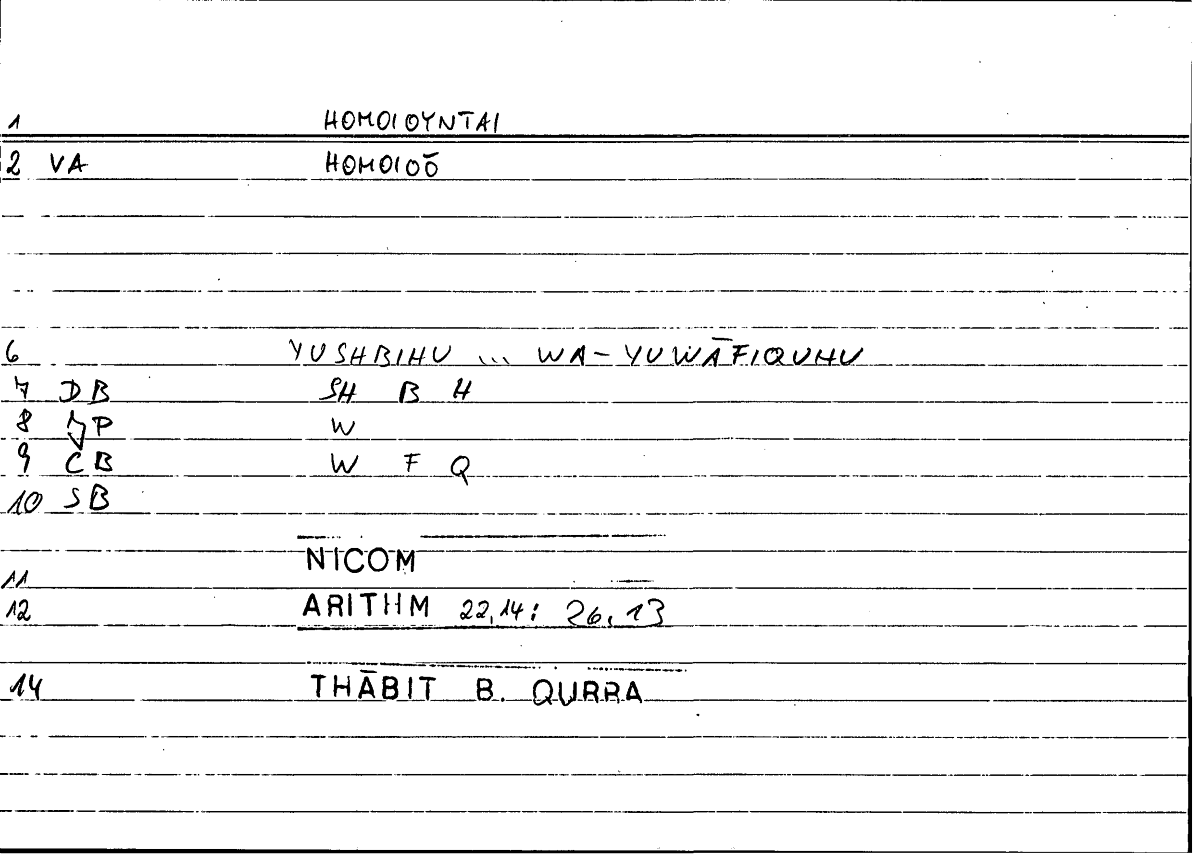 1 HOMOIOYNTAI
2 VA HOMOIOŌ
6 YUSHBIHU ... WA-YUWĀFIQUHU
7 DB SH B H
8 JP W
9 CB W F Q
10 SB
NICOM
11
12 ARITHM 22,14: 26,13
14 THĀBIT B. QURRA